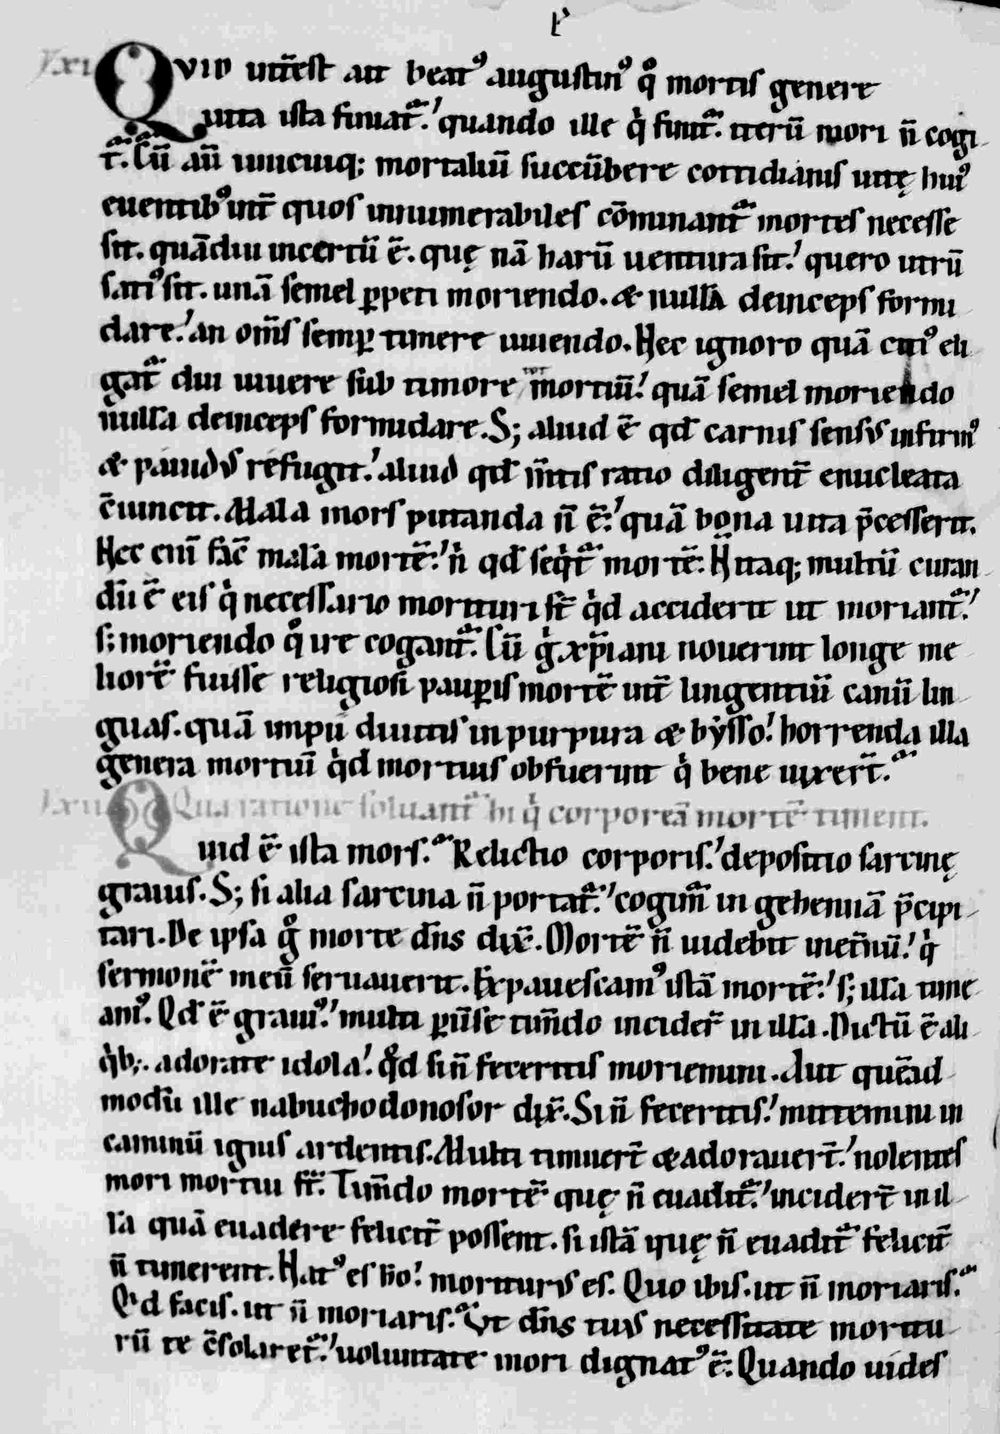 lxi QVID utr̄est ait beat᾽ augustin᾽ qͦ mortis genere
uita ista finiat᷑.ʼ quando ille qͥ finit᷑. iterū mori n̄ cogi
t᷑. Cū aū unicuiq; mortaliū succūbere cottidianis uitę hui᾽
euentib᾽ int̄ quos innumerabiles cōminant᷑ mortes necesse
sit. quādiu incertū ē. quę nā harū uentura sit.ʼ quero utrū
sati᾽ sit. unā semel ꝑpeti moriendo. & nullā deinceps formi
dare.ʼ an om̄s semꝑ timere uiuendo. Nec ignoro quā citi᾽ eli
gat᷑ diu uiuere sub timore tot mortiū.ʼ quā semel moriendo
nulla deinceps formidare. S; aliud ē qd̄ carnis sensus infirm᾽
& pauidus refugit.ʼ aliud qd̄ m̄tis ratio diligent̄ enucleata
c̄uincit. Mala mors putanda n̄ ē.ʼ quā bona uita p̄cesserit.
Nec eni facͭ malā mortē.ʼ nͥ qd̄ seqͥt᷑ mortē. N̄ itaq; multū curan
dū ē eis qͥ necessario morituri st̄ qͥd acciderit ut moriant᷑.ʼ
s; moriendo qͦ ire cogant᷑. Cū gͦ xp̄iani nouerint longe me
liorē fuisse religiosi pauꝑis mortē int̄ lingentiū canū lin
guas. quā impii diuitis in purpura & bysso.ʼ horrenda illa
genera mortiū qͥd mortuis obfuerint qͥ bene uixert̄.
lxii Qua ratione soluant᷑ hi qͥ corporeā mortē timent.
Quid ē ista mors. Relictio corporis.ʼ depositio sarcinę
grauis. S; si alia sarcina n̄ portat᷑.ʼ cogim᷑ in gehennā p̄cipi
tari. De ipsa gͦ morte dn̄s dix̄. Mortē n̄ uidebit inet̄nū.ʼ qͥ
sermonē meū seruauerit. Expauescam᾽ istā mortē.ʼ s; illā time
am᾽. Qd̄ ē graui᾽.ʼ multi ꝑ īse tim̄do incider̄ in illā. Dictū ē ali
qͥb;. adorate idola.ʼ qͦd si n̄ feceritis moriemini. Aut quēad
modū ille nabuchodonosor dix̄. Si n̄ feceritis.ʼ mittemini in
caminū ignis ardentis. Multi timuert̄ & adorauert̄.ʼ nolentes
mori mortui st̄. Tim̄do mortē quę n̄ euadit᷑.ʼ incidert̄ in il
lā quā euadere felicit̄ possent. si istā quę n̄ euadit᷑ felicit̄
n̄ timerent. Nat᾽ es ho.ʼ moriturus es. Quo ibis. ut n̄ moriaris.
Qͥd facis. ut n̄ moriaris. Ut dn̄s tuus necessitate moritu
rū te c̄solaret᷑.ʼ uoluntate mori dignat᾽ ē. Quando uides